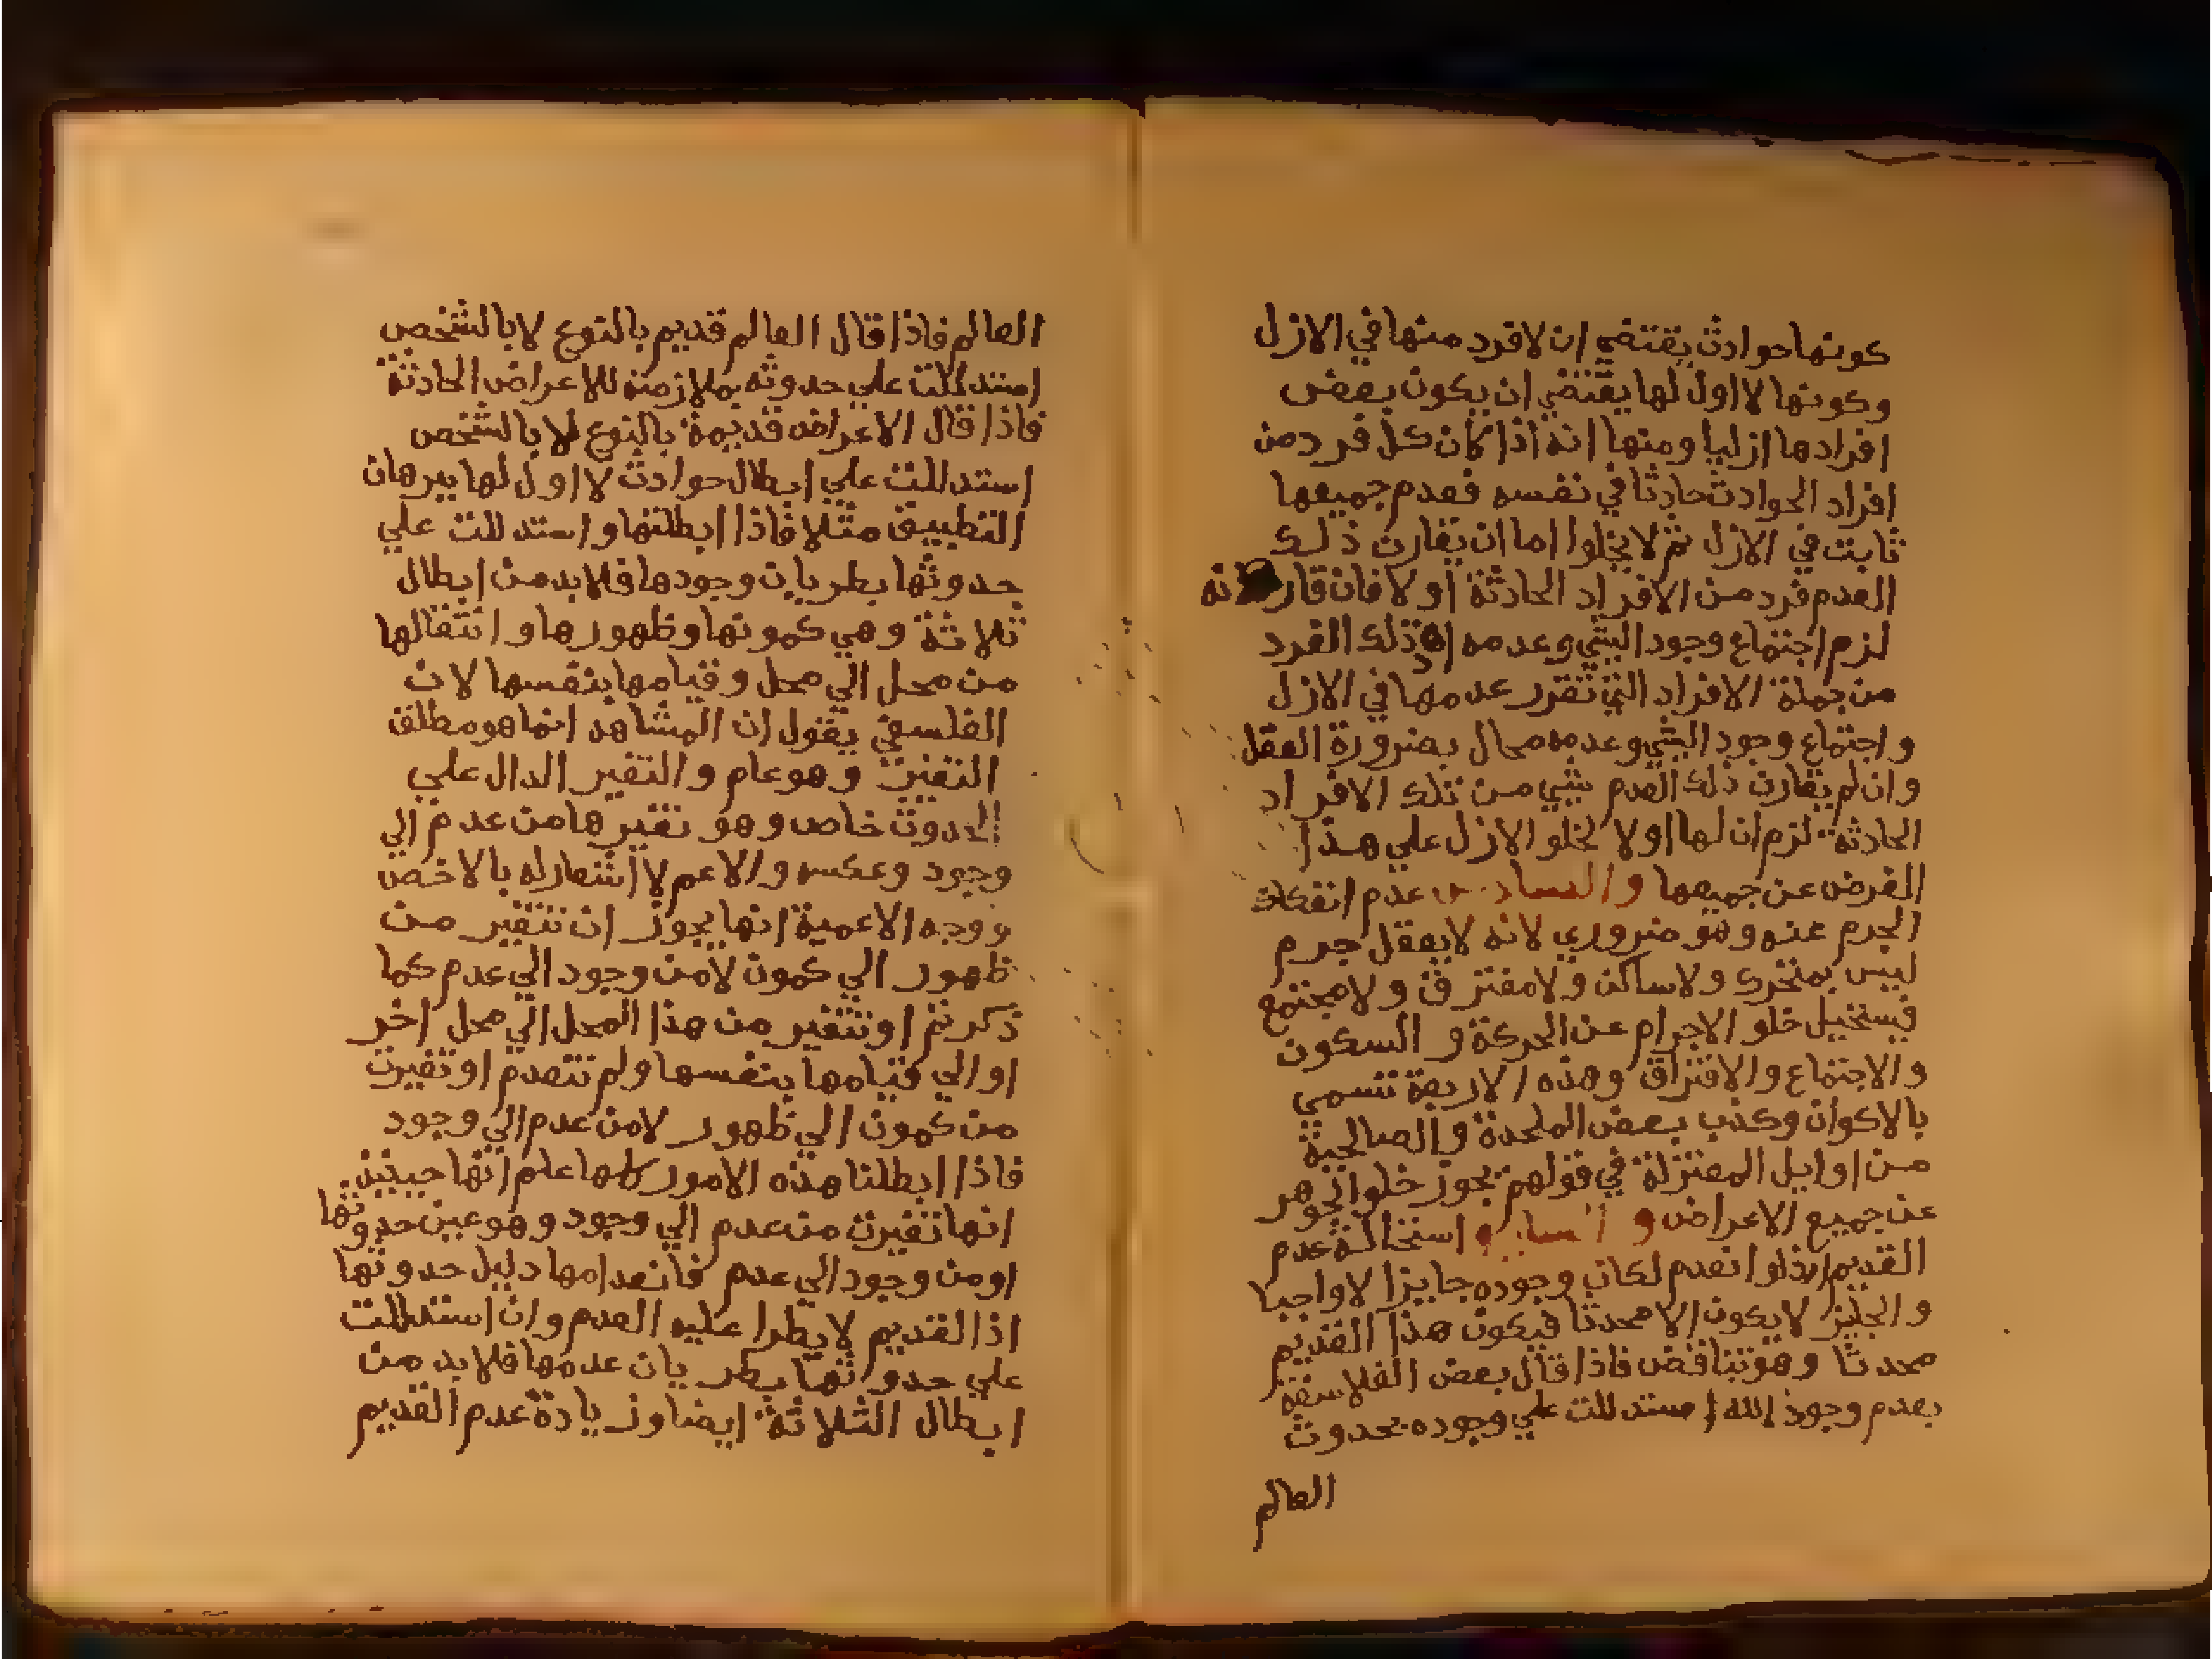 كونها حوادث يقتضي ان لا فرد منها في الازل
وكونها لا اول لها يقتضي ان يكون بعض
افرادها ازليا ومنها انه اذا كان كل فرد من
افراد الحوادث حادثا في نفسه فعدم جميعها
ثابت في الازل ثم لا يخلوا اما ان يقارن ذلك
العدم فرد من الافراد الحادثة او لا فان قارنه
لزم اجتماع وجود الشي وعدمه اذ ذلك الفرد
من جملة الافراد التي تقرر عدمها في الازل
واجتماع وجود الشي وعدمه محال بضرورة العقل
وان لم يقارن ذلك العدم شي من تلك الافراد
الحادثة لزم ان لها اولا لخلو الازل علي هذا
الفرض عن جميعها والسادس عدم انفكاك
الجرم عنه وهو ضروري لانه لا يعقل جرم
ليس بمتحرك ولا ساكن ولا مفترق ولا مجتمع
فيستحيل خلو الاجرام عن الحركة والسكون
والاجتماع والافتراق وهذه الاربعة تسمي
بالاكوان وكذب بعض الملحدة والصالحية
من اوايل المعتزلة في قولهم بجوز خلو الجوهر
عن جميع الاعراض والسابع استحالة عدم
القديم اذ لو انعدم لكان وجوده جايزا لا واجبا
والجايز لا يكون الا محدثا فيكون هذا القديم
محدثا وهو تناقض فاذا قال بعض الفلاسفة
بعدم وجود الله استدللت علي وجوده بحدوث
العالم
العالم فاذا قال العالم قديم بالنوع لا بالشخص
استدللت علي حدوثه بملازمته للاعراض الحادثة
فاذا قال الاعراض قديمة بالنوع لا بالشخص
استدللت علي ابطال حوادث لا اول لها ببرهان
التطبيق مثلا فاذا ابطلتها واستدللت علي
حدوثها بطريان وجودها فلا بد من ابطال
ثلاثة وهي كمونها وظهورها وانتقالها
من محل الي محل وقيامها بنفسها لان
الفلسفي يقول ان المشاهد انما هو مطلق
التغير وهو عام والتغير الدال علي
الحدوث خاص وهو تغيرها من عدم الي
وجود وعكسه والاعم لا اشعار له بالاخص
ووجه الاعمية انها يجوز ان تتغير من
ظهور الي كمون لا من وجود الي عدم كما
ذكرتم او تتغير من هذا المحل الي محل اخر
او الي قيامها بنفسها ولم تنعدم او تغيرت
من كمون الي ظهور لا من عدم الي وجود
فاذا ابطلنا هذه الامور كلها علم انها حينئذ
انها تغيرت من عدم الي وجود وهو عين حدوثها
او من وجود الي عدم فانعدامها دليل حدوثها
اذ القديم لا يطرا عليه العدم وان استدللت
علي حدوثها بطريان عدمها فلا بد من
ابطال الثلاثة ايضا وزيادة عدم القديم